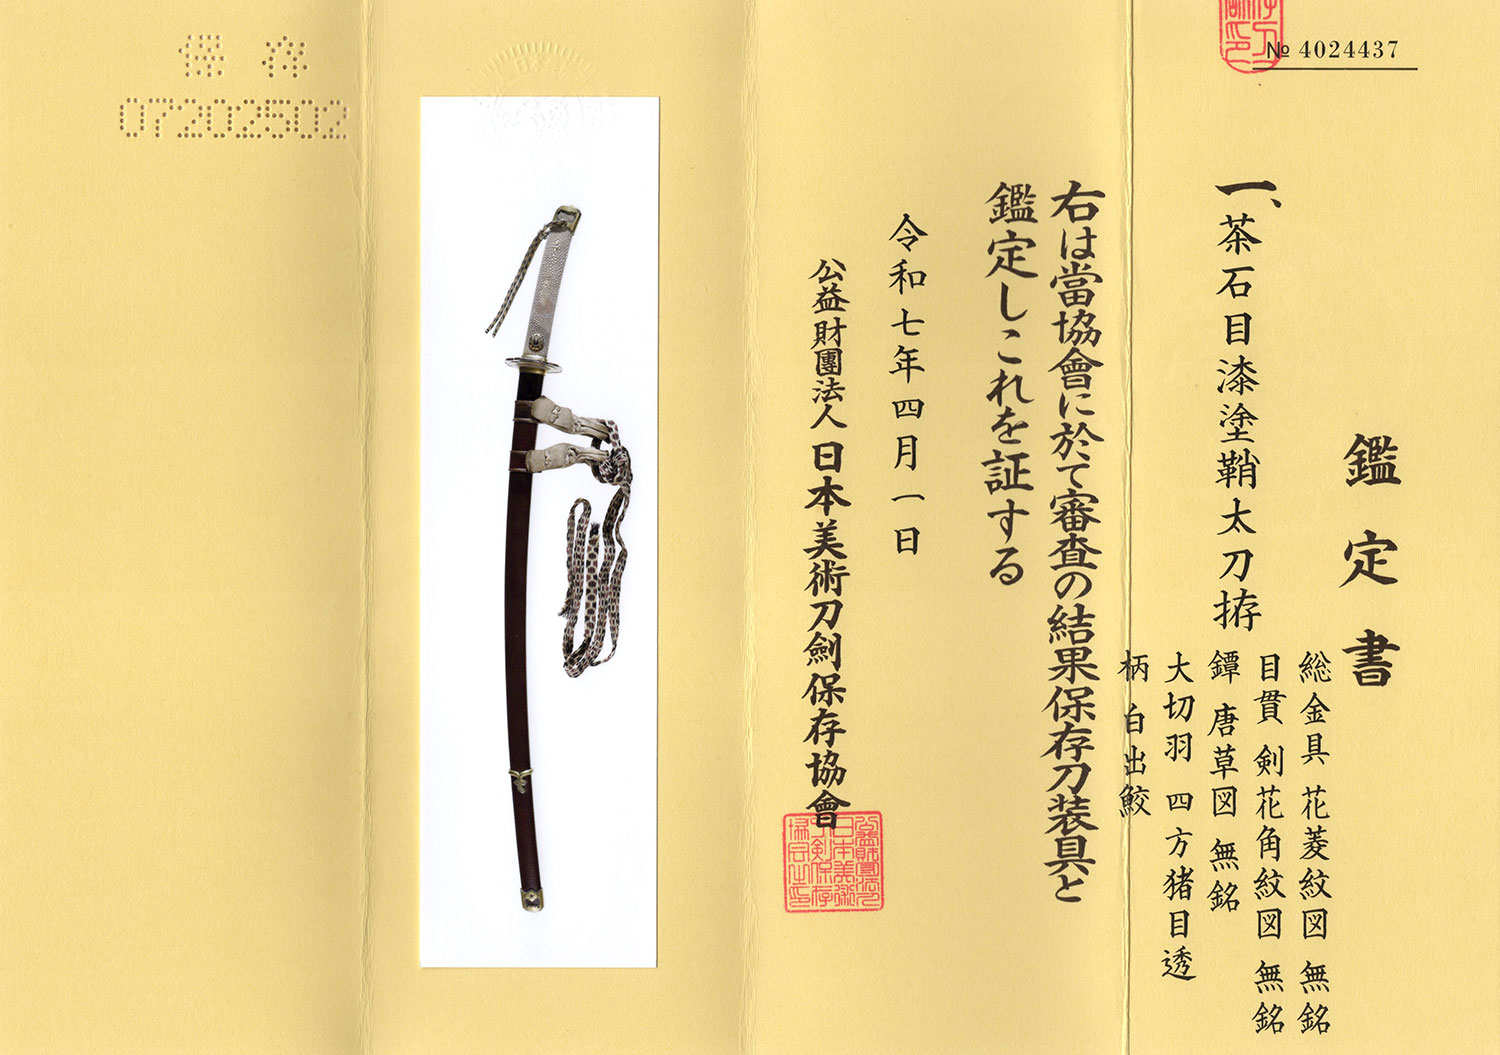 № 4024437
鑑定書
一、茶石目漆塗鞘太刀拵
総金具 花菱紋図 無銘
目貫 剣花角紋図 無銘
鐔 唐草図 無銘
大切羽 四方猪目透
柄 白出鮫
右は當協會に於て審査の結果保存刀装具と
鑑定しこれを証する
令和七年四月一日
公益財團法人 日本美術刀劍保存協會
保存
07202502